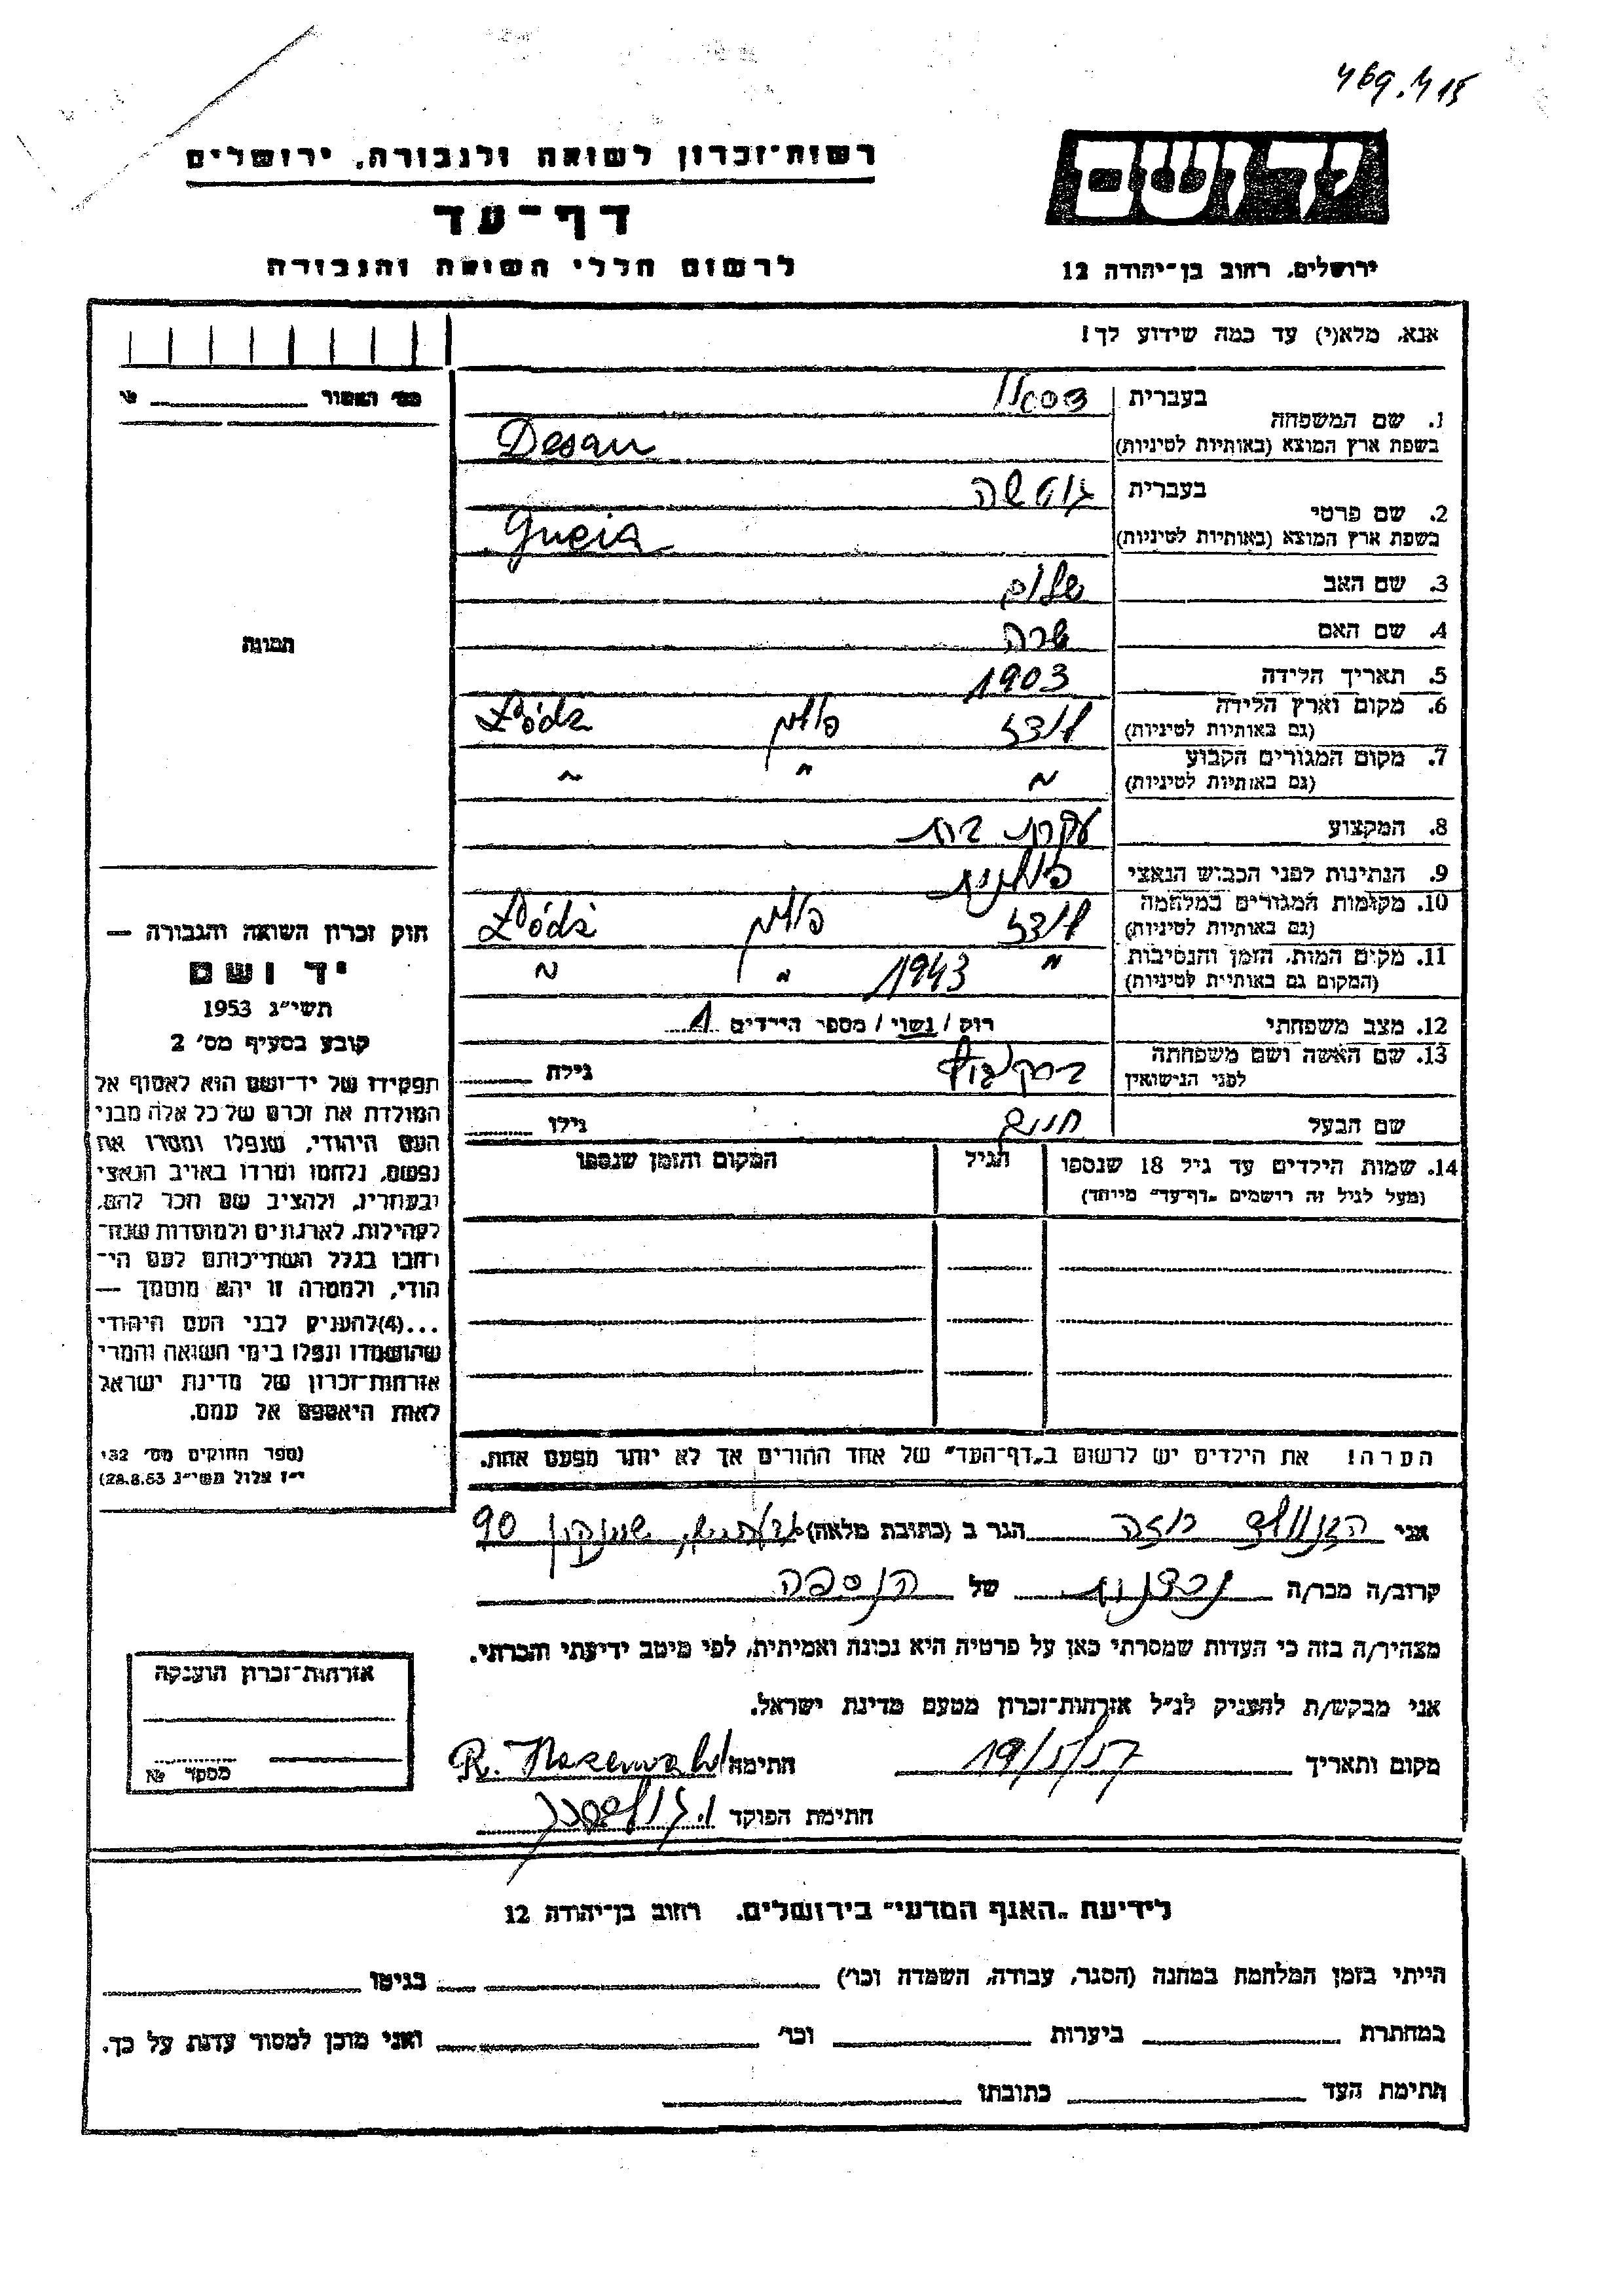 469.415
יד ושם
ירושלים, רחוב בן־יהודה 12
רשות־זכרון לשואה ולגבורה, ירושלים
דף־עד
לרשום חללי השואה והגבורה
אנא, מלא(י) עד כמה שידוע לך!
1. שם המשפחה בעברית
בשפת ארץ המוצא (באותיות לטיניות) Desau
2. שם פרטי בעברית גוטשה
בשפת ארץ המוצא (באותיות לטיניות) Gucia
3. שם האב שלום
4. שם האם שרה
5. תאריך הלידה 1903
6. מקום וארץ הלידה לודז פולין Łódź
(גם באותיות לטיניות)
7. מקום המגורים הקבוע " " "
(גם באותיות לטיניות)
8. המקצוע עקרת בית
9. הנתינות לפני הכבוש הנאצי פולנית
10. מקומות המגורים במלחמה לודז פולין Łódź
(גם באותיות לטיניות)
11. מקום המות, הזמן והנסיבות " 1943 " "
(המקום גם באותיות לטיניות)
12. מצב משפחתי רוק / נשוי / מספר הילדים 1
13. שם האשה ושם משפחתה
לפני הנישואין גילה
שם הבעל חנוך גילו
14. שמות הילדים עד גיל 18 שנספו הגיל המקום והזמן שנספו
(מעל לגיל זה רושמים „דף־עד" מיוחד)
הערה! את הילדים יש לרשום ב„דף־העד" של אחד ההורים אך לא יותר מפעם אחת.
מס' האסור
תמונה
חוק זכרון השואה והגבורה —
יד ושם
תשי"ג 1953
קובע בסעיף מס' 2
תפקידו של יד־ושם הוא לאסוף אל
המולדת את זכרם של כל אלה מבני
העם היהודי, שנפלו ומסרו את
נפשם, נלחמו ומרדו באויב הנאצי
ובעוזריו, ולהציב שם וזכר להם,
לקהילות, לארגונים ולמוסדות שנח־
רבו בגלל השתייכותם לעם הי־
הודי, ולמטרה זו יהא מוסמך —
...(4) להעניק לבני העם היהודי
שהושמדו ונפלו בימי השואה והמרי
אזרחות־זכרון של מדינת ישראל
לאות היאספם אל עמם.
(ספר החוקים מס' 132
י"ז אלול תשי"ג 28.8.53)
אני רוזה הגר ב (כתובת מלאה) 90
קרוב/ה מכר/ה של הנספה
מצהיר/ה בזה כי העדות שמסרתי כאן על פרטיה היא נכונה ואמיתית, לפי מיטב ידיעתי והכרתי.
אני מבקש/ת להעניק לנ"ל אזרחות־זכרון מטעם מדינת ישראל.
מקום ותאריך 19/5/57 חתימה R.
חתימת הפוקד
אזרחות־זכרון הוענקה
מספר №
לידיעת „האגף המדעי" בירושלים, רחוב בן־יהודה 12
הייתי בזמן המלחמה במחנה (הסגר, עבודה, השמדה וכו') בגיטו
במחתרת ביערות וכו' ואני מוכן למסור עדות על כך.
חתימת העד כתובתו